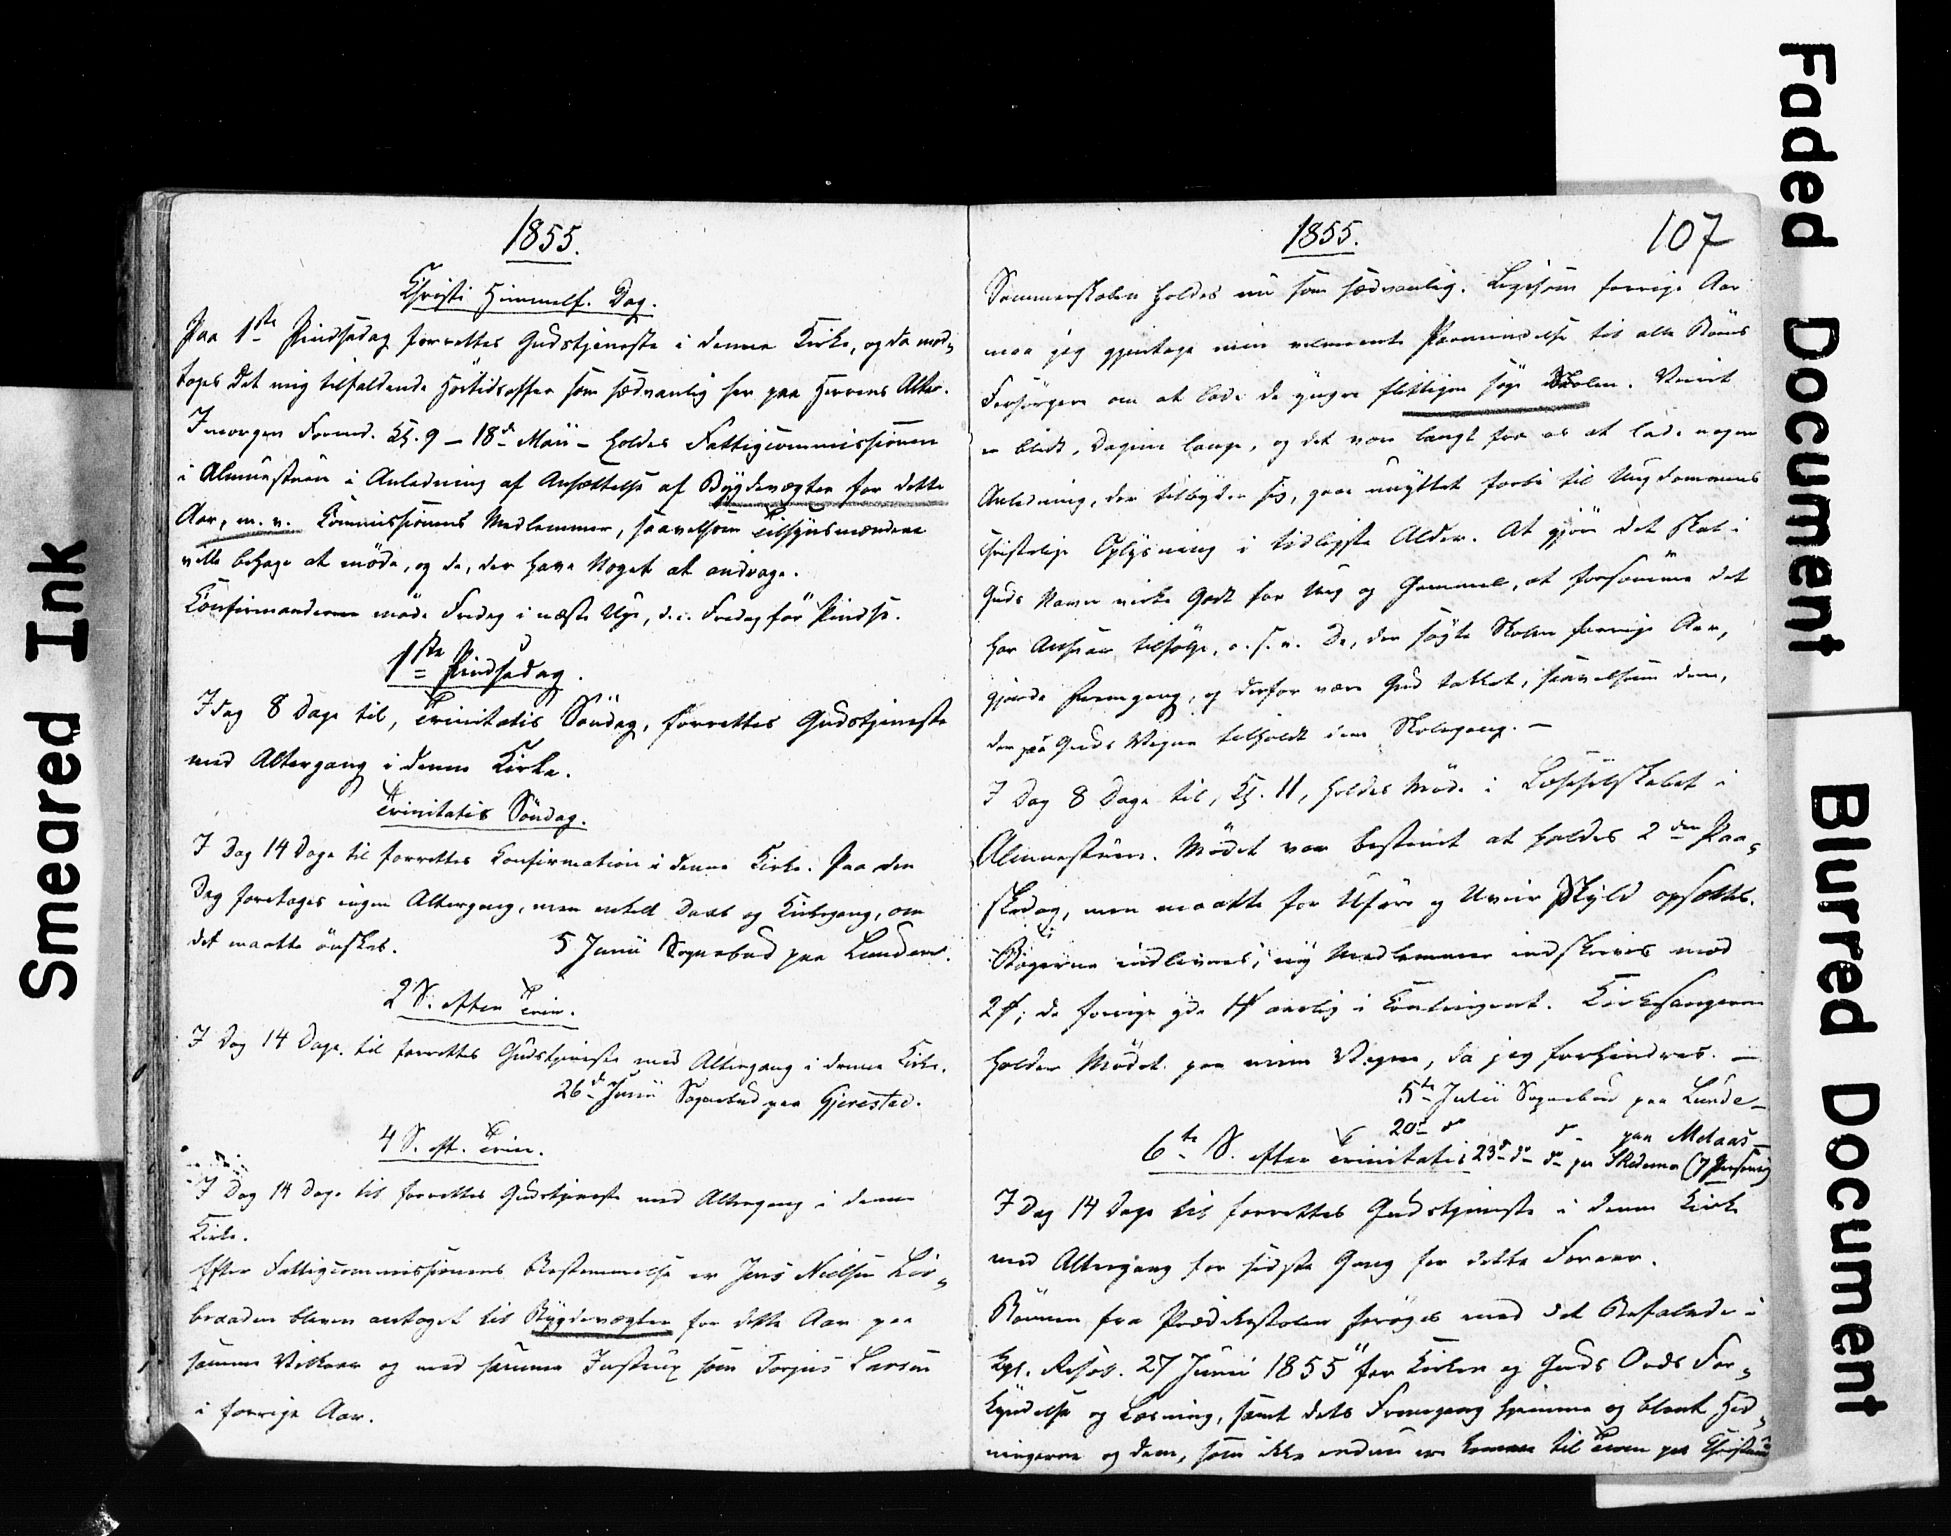 1855.
Christi Himmelf. Dag.
Paa 1ste Pindsedag forrettes Gudstjeneste i denne Kirke, og da mod„
tages det mig tilfaldende Höitidsoffer som sædvanlig her paa Herrens Alter.
Imorgen Formd. Kl. 9 – 18de Maii – holdes Fattigcommissionen
i Almuestuen i Anledning af Ansættelse af Bygdevægter for dette
Aar, m. v. Commissionens Medlemmer, saavelsom Tilsynsmændene
ville behage at möde, og de, der have Noget at andrage.
Confirmanderne möde Fredag i næste Uge, d. e. Fredag för Pindse.
1ste Pindsedag.
Idag 8 Dage til, Trinitatis Söndag, forrettes Gudstjeneste
med Altergang i denne Kirke.
Trinitatis Söndag.
I Dag 14 Dage til forrettes Confirmation i denne Kirke. Paa den
Dag foretages ingen Altergang, men enkelt Daab og Kirkegang, om
det maatte önskes.
5 Junii Sognebud paa Lunden.
2 S. efter Trin.
I Dag 14 Dage til forrettes Gudstjeneste med Altergang i denne Kirke.
26de Junii Sognebud paa Gjerestad.
4 S. eft. Trin.
I Dag 14 Dage til forrettes Gudstjeneste med Altergang i denne
Kirke.
Efter Fattigcommissionens Bestemmelse er Jens Nielsen Lör„
braaden bleven antaget til Bygdevægter for dette Aar paa
samme Vilkaar og med samme Instrux som Torjus Larsen
i forrige Aar.
1855.
107
Sommerskolen holdes nu som sædvanlig. Ligesom forrige Aar
maa jeg gjentage min velmeente Paamindelse til alle Börns
Forsörgere om at lade de yngre flittigen söge Skolen. Veiret
er blidt, Dagene lange, og det være langt fra os at lade nogen
Anledning, der tilbyder sig, gaae unyttet forbi til Ungdommens
christelige Oplysning i tidligste Alder. At gjöre det skal i
Guds Navn virke Godt for Ung og Gammel, at forsömme det
har Ansvar tilfölge, o. s. v. De, der sögte Skolen forrige Aar,
gjorde Fremgang, og derfor være Gud takket, saavelsom dem,
der paa Guds Vegne tilholdt dem Skolegang. –
I Dag 8 Dage til, Kl. 11, holdes Möde i Læseselskabet i
Almuestuen. Mödet var bestemt at holdes 2den Paa„
skedag, men maatte for Uföre og Uveir Skyld opsættes.
Bögerne indleveres; ny Medlemmer indskrives med
2 ; de forrige yde 1 aarlig i Contingent. Kirkesangeren
holder Mödet paa mine Vegne, da jeg forhindres. –
5te Julii Sognebud paa Lunde–
20de do do paa Melaas–
6te S. efter Trinitatis 23de do do paa (7 Personer)
I Dag 14 Dage til forrettes Gudstjeneste i denne Kirke
med Altergang for sidste Gang for dette Foraar.
Bönnen fra Prædikestolen foröges med det Befalede i
Kgl. Resol. 27 Junii 1855 "for Kirken og Guds Ords For„
kyndelse og Læsning, samt dets Fremgang hjemme og blant Hed„
ningerne og dem, som ikke endnu ere komne til Troen paa Christum